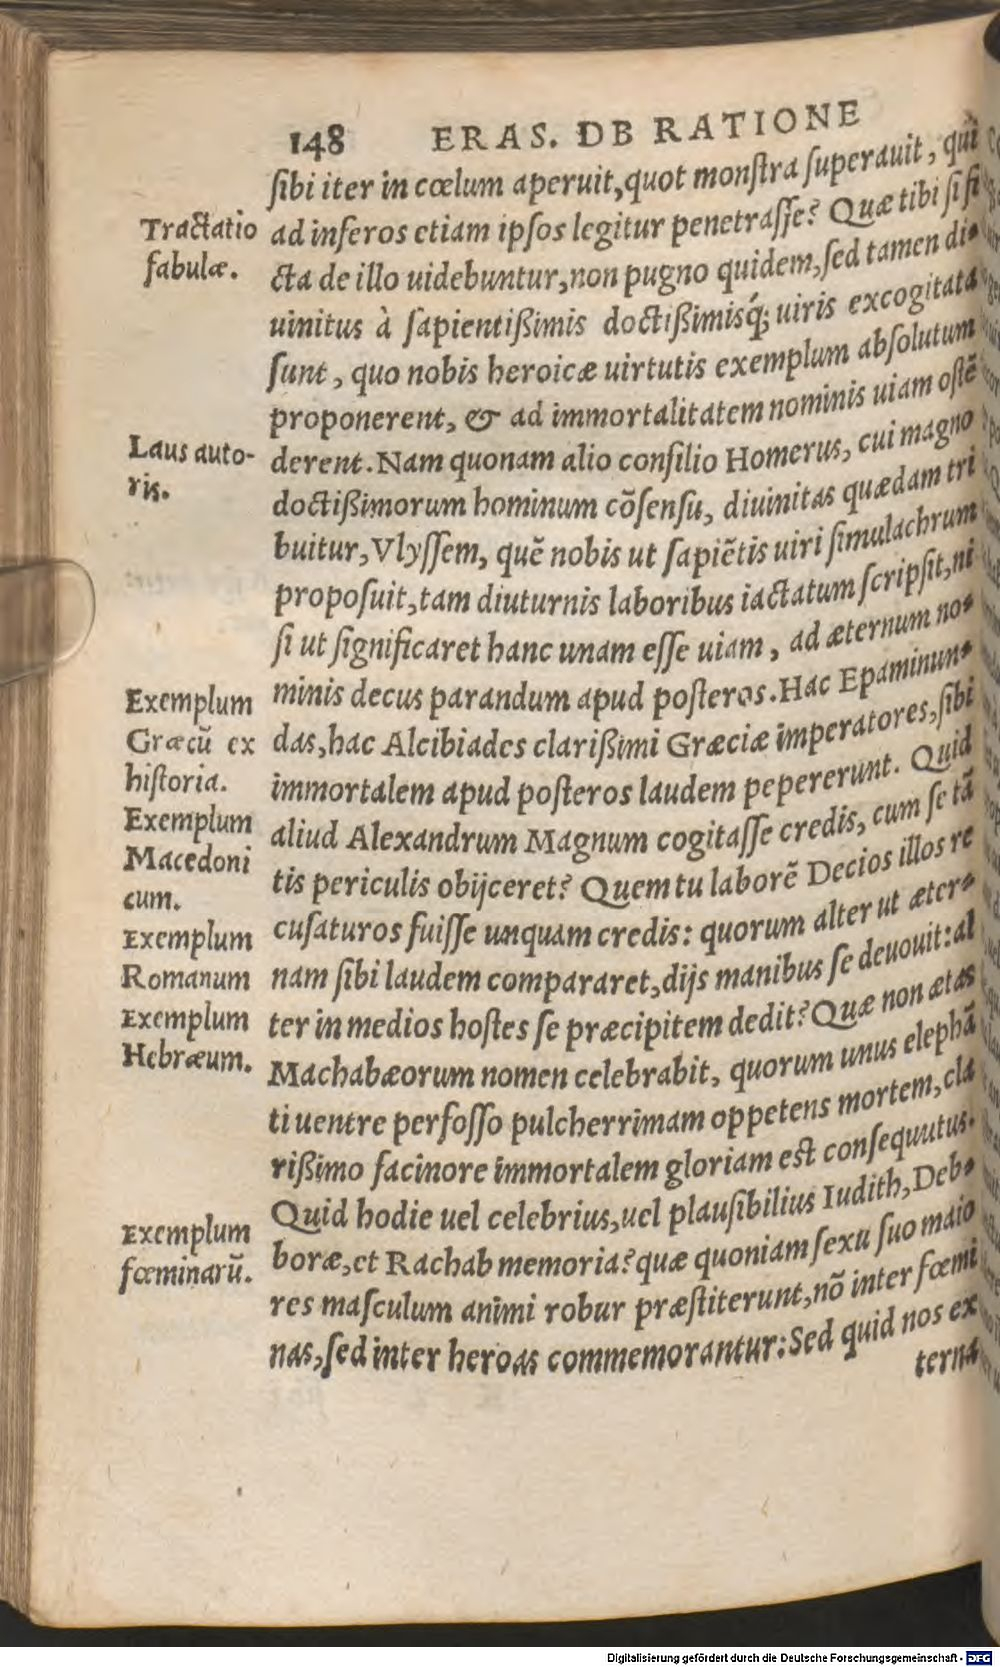 148 ERAS. DE RATIONE
ſibi iter in cœlum aperuit, quot monſtra ſuperauit, qui
Tractatio
fabulæ.
ad inferos etiam ipſos legitur penetraſſe? Quæ tibi ſi fi
cta de illo uidebuntur, non pugno quidem, ſed tamen di-
uinitus à ſapientißimis doctißimisq́; uiris excogitata
ſunt, quo nobis heroicæ uirtutis exemplum abſolutum
proponerent, & ad immortalitatem nominis uiam oſtē
Laus auto-
ris.
derent. Nam quonam alio conſilio Homerus, cui magno
doctißimorum hominum cōſenſu, diuinitas quædam tri
buitur, Vlyſſem, quē nobis ut ſapiētis uiri ſimulachrum
propoſuit, tam diuturnis laboribus iactatum ſcripſit, ni
ſi ut ſignificaret hanc unam eſſe uiam, ad æternum no-
Exemplum
Græcū ex
hiſtoria.
minis decus parandum apud poſteros. Hac Epaminun-
das, hac Alcibiades clarißimi Græciæ imperatores, ſibi
immortalem apud poſteros laudem pepererunt. Quid
Exemplum
Macedoni
cum.
aliud Alexandrum Magnum cogitaſſe credis, cum ſe tā
tis periculis obijceret? Quem tu laborē Decios illos re
Exemplum
Romanum
cuſaturos fuiſſe unquam credis: quorum alter ut æter-
nam ſibi laudem compararet, dijs manibus ſe deuouit: al
Exemplum
Hebræum.
ter in medios hoſtes ſe præcipitem dedit? Quæ non ætas
Machabæorum nomen celebrabit, quorum unus elephā
ti uentre perfoſſo pulcherrimam oppetens mortem, cla
rißimo facinore immortalem gloriam eſt conſequutus.
Exemplum
fœminarū.
Quid hodie uel celebrius, uel plauſibilius Iudith, Deb-
boræ, et Rachab memoria? quæ quoniam ſexu ſuo maio
res maſculum animi robur præſtiterunt, nō inter fœmi
nas, ſed inter heroas commemorantur: Sed quid nos ex
terna
Digitalisierung gefördert durch die Deutsche Forschungsgemeinschaft - DFG